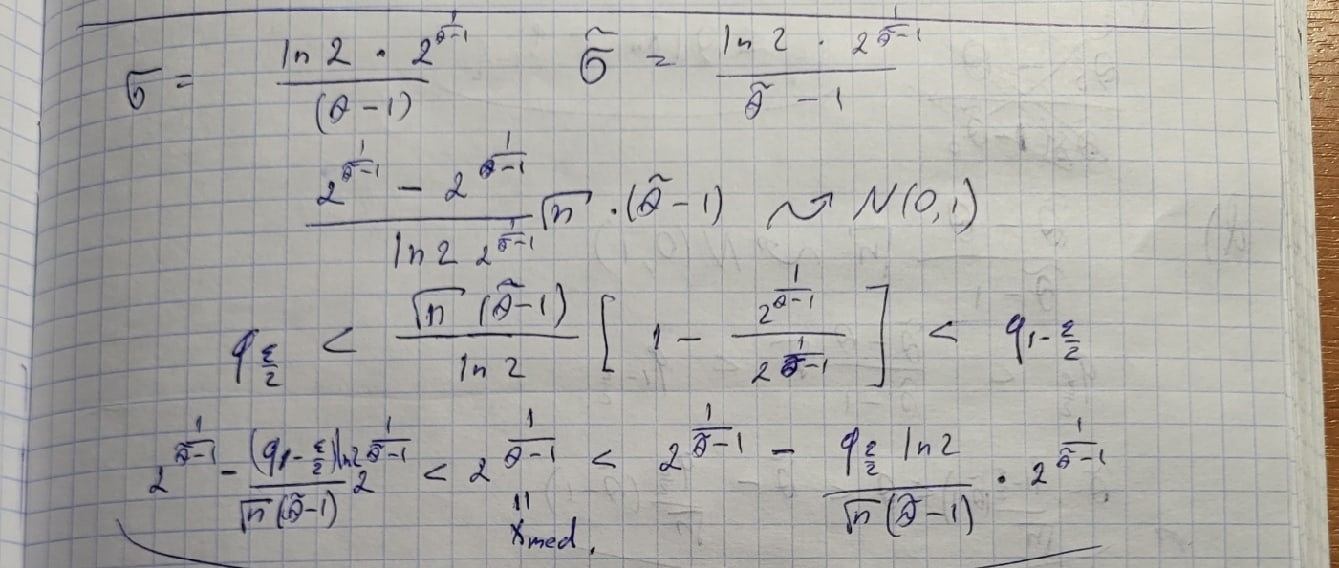 σ = ln 2 · 2^(1/(θ̃-1)) / (θ-1)    σ̃ = ln 2 · 2^(1/(θ̃-1)) / (θ̃ - 1)
(2^(1/(θ̃-1)) - 2^(1/(θ-1))) / (ln 2 2^(1/(θ̃-1))) √n · (θ̃-1) ⇝ N(0,1)
q_(ε/2) < (√n (θ̃-1) / ln 2) [1 - 2^(1/(θ-1)) / 2^(1/(θ̃-1))] < q_(1-ε/2)
2^(1/(θ̃-1)) - ((q_(1-ε/2)) ln 2 / (√n (θ̃-1))) 2^(1/(θ̃-1)) < 2^(1/(θ-1)) < 2^(1/(θ̃-1)) - (q_(ε/2) ln 2 / (√n (θ̃-1))) · 2^(1/(θ̃-1))
||
x_med.